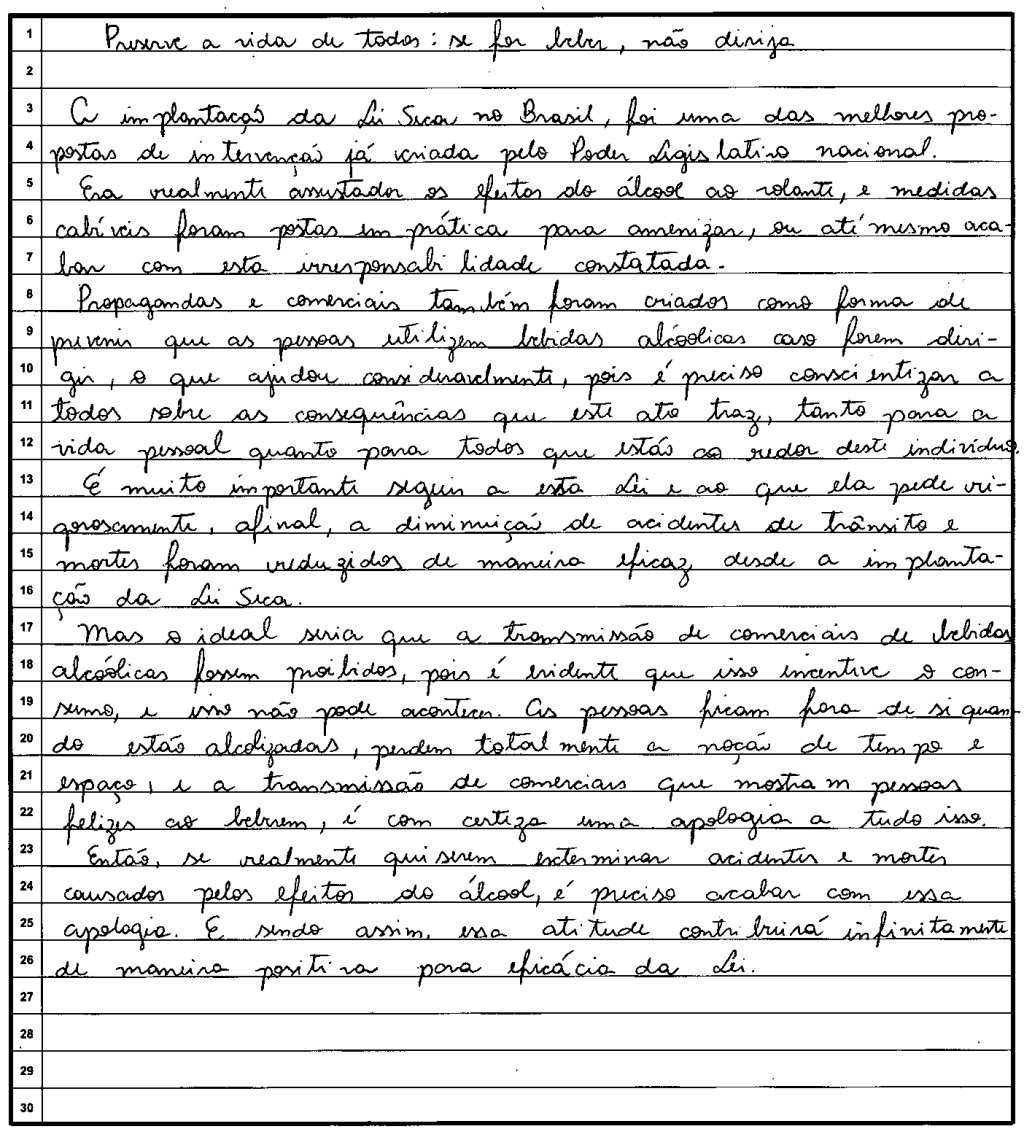 1 Preserve a vida de todos: se for beber, não dirija
2
3 A implantação da Lei Seca no Brasil, foi uma das melhores pro-
4 postas de intervenção já criada pelo Poder Legislativo nacional.
5 Era realmente assustador os efeitos do álcool ao volante, e medidas
6 cabíveis foram postas em prática para amenizar, ou até mesmo aca-
7 bar com esta irresponsabilidade constatada.
8 Propagandas e comerciais também foram criados como forma de
9 prevenir que as pessoas utilizem bebidas alcóolicas caso forem diri-
10 gir, o que ajudou consideravelmente, pois é preciso conscientizar a
11 todos sobre as consequências que este ato traz, tanto para a
12 vida pessoal quanto para todos que estão ao redor deste indivíduo.
13 É muito importante seguir a esta Lei e ao que ela pede ri-
14 gorosamente, afinal, a diminuição de acidentes de trânsito e
15 mortes foram reduzidos de maneira eficaz desde a implanta-
16 ção da Lei Seca.
17 Mas o ideal seria que a transmissão de comerciais de bebidas
18 alcóolicas fossem proibidos, pois é evidente que isso incentive o con-
19 sumo, e isso não pode acontecer. As pessoas ficam fora de si quan-
20 do estão alcolizadas, perdem totalmente a noção de tempo e
21 espaço, e a transmissão de comerciais que mostram pessoas
22 felizes ao beberem, é com certeza uma apologia a tudo isso.
23 Então, se realmente quiserem exterminar acidentes e mortes
24 causados pelos efeitos do álcool, é preciso acabar com essa
25 apologia. E sendo assim, essa atitude contribuirá infinitamente
26 de maneira positiva para eficácia da Lei.
27
28
29
30